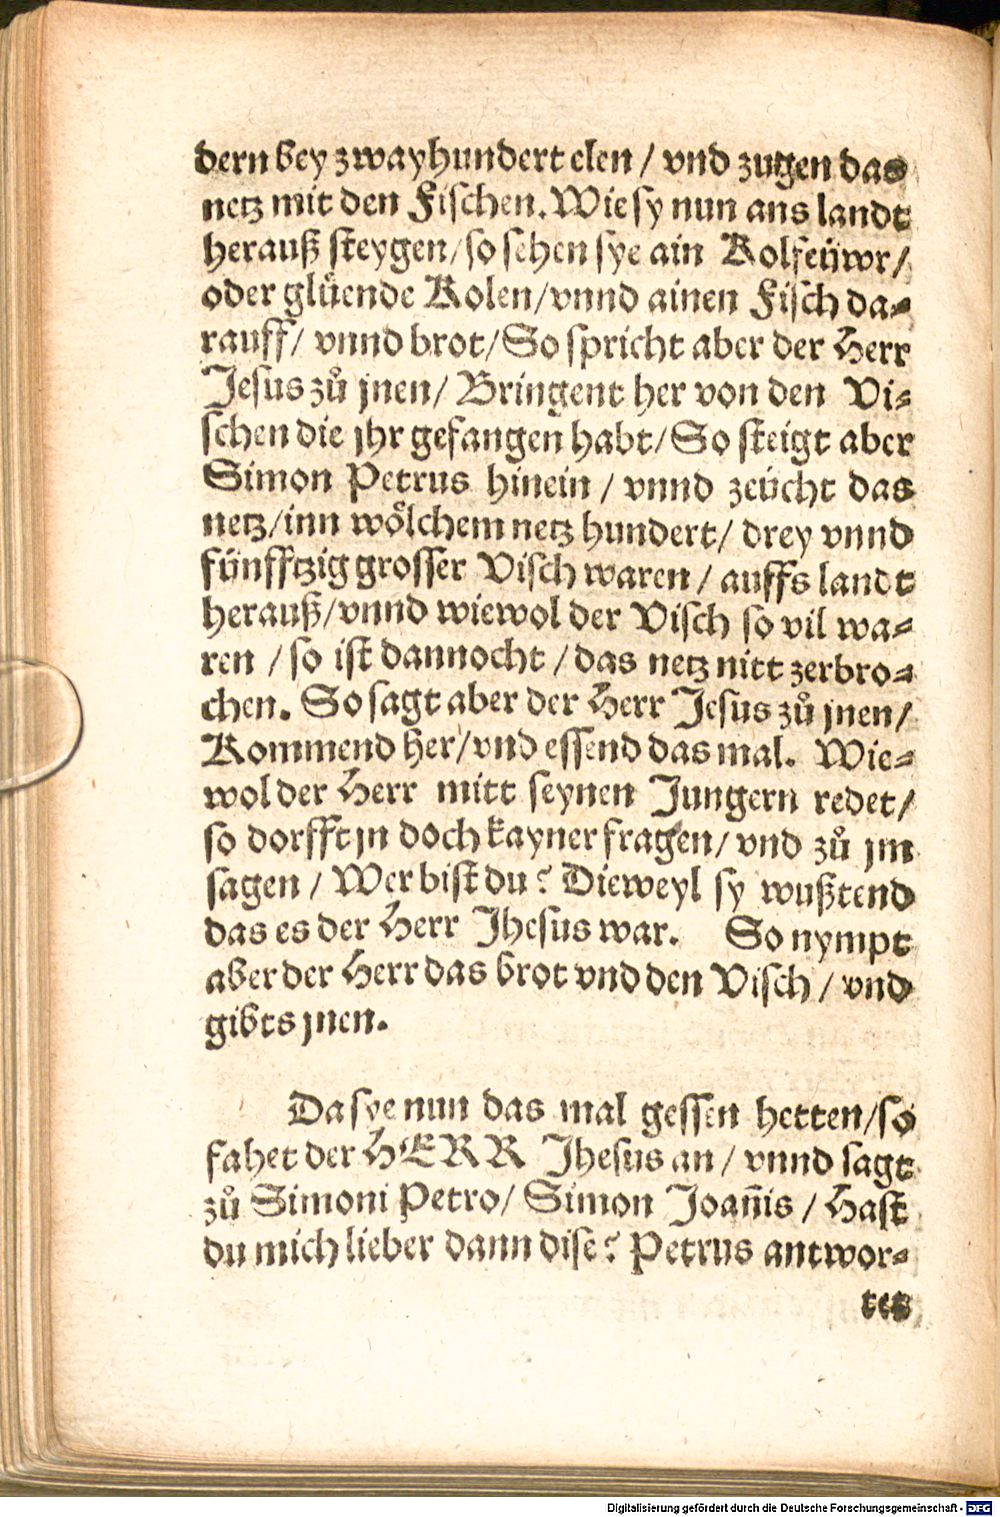 dern bey zwayhundert elen / vnd zugen das
netz mit den Fischen. Wie sy nun ans landt
herauß steygen / so sehen sye ain Kolfeüwr /
oder glüende Kolen / vnnd ainen Fisch da⸗
rauff / vnnd brot / So spricht aber der Herr
Jesus zů jnen / Bringent her von den Vi⸗
schen die jhr gefangen habt / So steigt aber
Simon Petrus hinein / vnnd zeücht das
netz / inn woͤlchem netz hundert / drey vnnd
fünfftzig grosser Visch waren / auffs landt
herauß / vnnd wiewol der Visch so vil wa⸗
ren / so ist dannocht / das netz nitt zerbro⸗
chen. So sagt aber der Herr Jesus zů jnen /
Kommend her / vnd essend das mal. Wie⸗
wol der Herr mitt seynen Jungern redet /
so dorfft jn doch kayner fragen / vnd zů jm
sagen / Wer bist du? Dieweyl sy wußtend
das es der Herr Jhesus war. So nympt
aber der Herr das brot vnd den Visch / vnd
gibts jnen.
Da sye nun das mal gessen hetten / so
fahet der HERR Jhesus an / vnnd sagt
zů Simoni Petro / Simon Joan̄is / Hast
du mich lieber dann dise? Petrus antwor⸗
tet
Digitalisierung gefördert durch die Deutsche Forschungsgemeinschaft - DFG